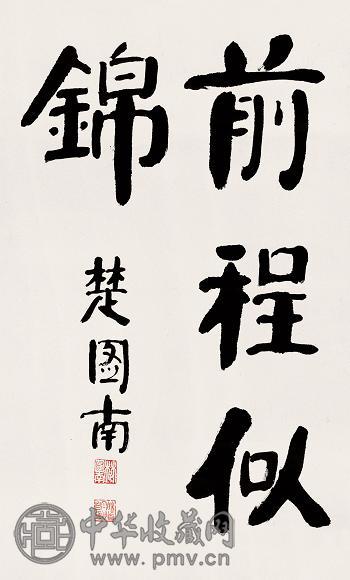 前程似
錦
楚图南
中华收藏网
www.pmv.cn